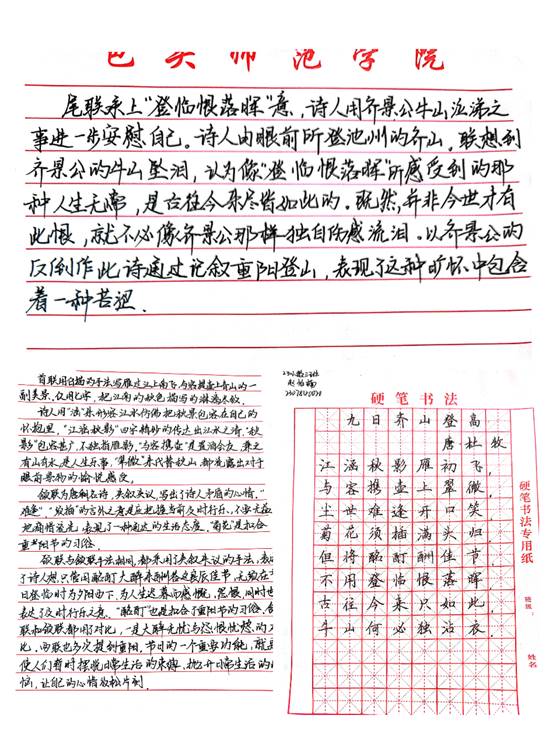 包头师范学院
尾联承上"登临恨落晖"意,诗人用齐景公牛山泣涕之
事进一步安慰自己。诗人由眼前所登池州的齐山。联想到
齐景公的牛山坠泪,认为像"登临恨落晖"所感受到的那
种人生无常,是古往今来尽皆如此的。既然,并非今世才有
此恨,就不必像齐景公那样独自伤感流泪。以齐景公的
反例作此诗通过记叙重阳登山,表现了这种旷怀中包含
着一种苦涩.
首联用白描的手法写雁过江上南飞,与客携壶上青山的一
副美景,仅用七字,把江南的秋色描写的淋漓尽致,
诗人用"涵"来形容江水仿佛把秋景包容在自己的
怀抱里,"江涵秋影"四字精妙的传达出江水之清,"秋
影"包容甚广,不独指雁影,"与客携壶"是置酒会友,兼之
有山有水,是人生乐事,"翠微"来代替秋山,都流露出对于
眼前景物的愉悦感受,
颔联为唐诗名诗,夹叙夹议,写出了诗人矛盾的心情."
难逢""须插"的言外之意是应把握当前及时行乐,不要无益
地痛惜流光,表现了一种通达的生活态度,"菊花"是扣合
重阳节的习俗.
颈联与颔联手法相同,都采用了夹叙夹议的手法,表
了诗人想只管用酩酊大醉来酬答这良辰佳节,无须在
日登临时为夕阳西下,为人生迟暮而感慨,怨恨,同时也
表达了及时行乐之意."酩酊"也是扣合了重阳节的习俗,
联和颔联都用了对比,一是大醉无忧与怨恨忧愁的
比,两联也多次提到重阳,节日的一个重要功能,就是
使人们暂时摆脱日常生活的束缚,抛开日常生活的
恼,让自己的心情放松片刻.
硬笔书法
九日齐山登高
唐·杜牧
江涵秋影雁初飞,
与客携壶上翠微,
尘世难逢开口笑,
菊花须插满头归,
但将酩酊酬佳节,
不用登临恨落晖
古往今来只如此,
牛山何必独沾衣.
硬笔书法专用纸
班级:
姓名